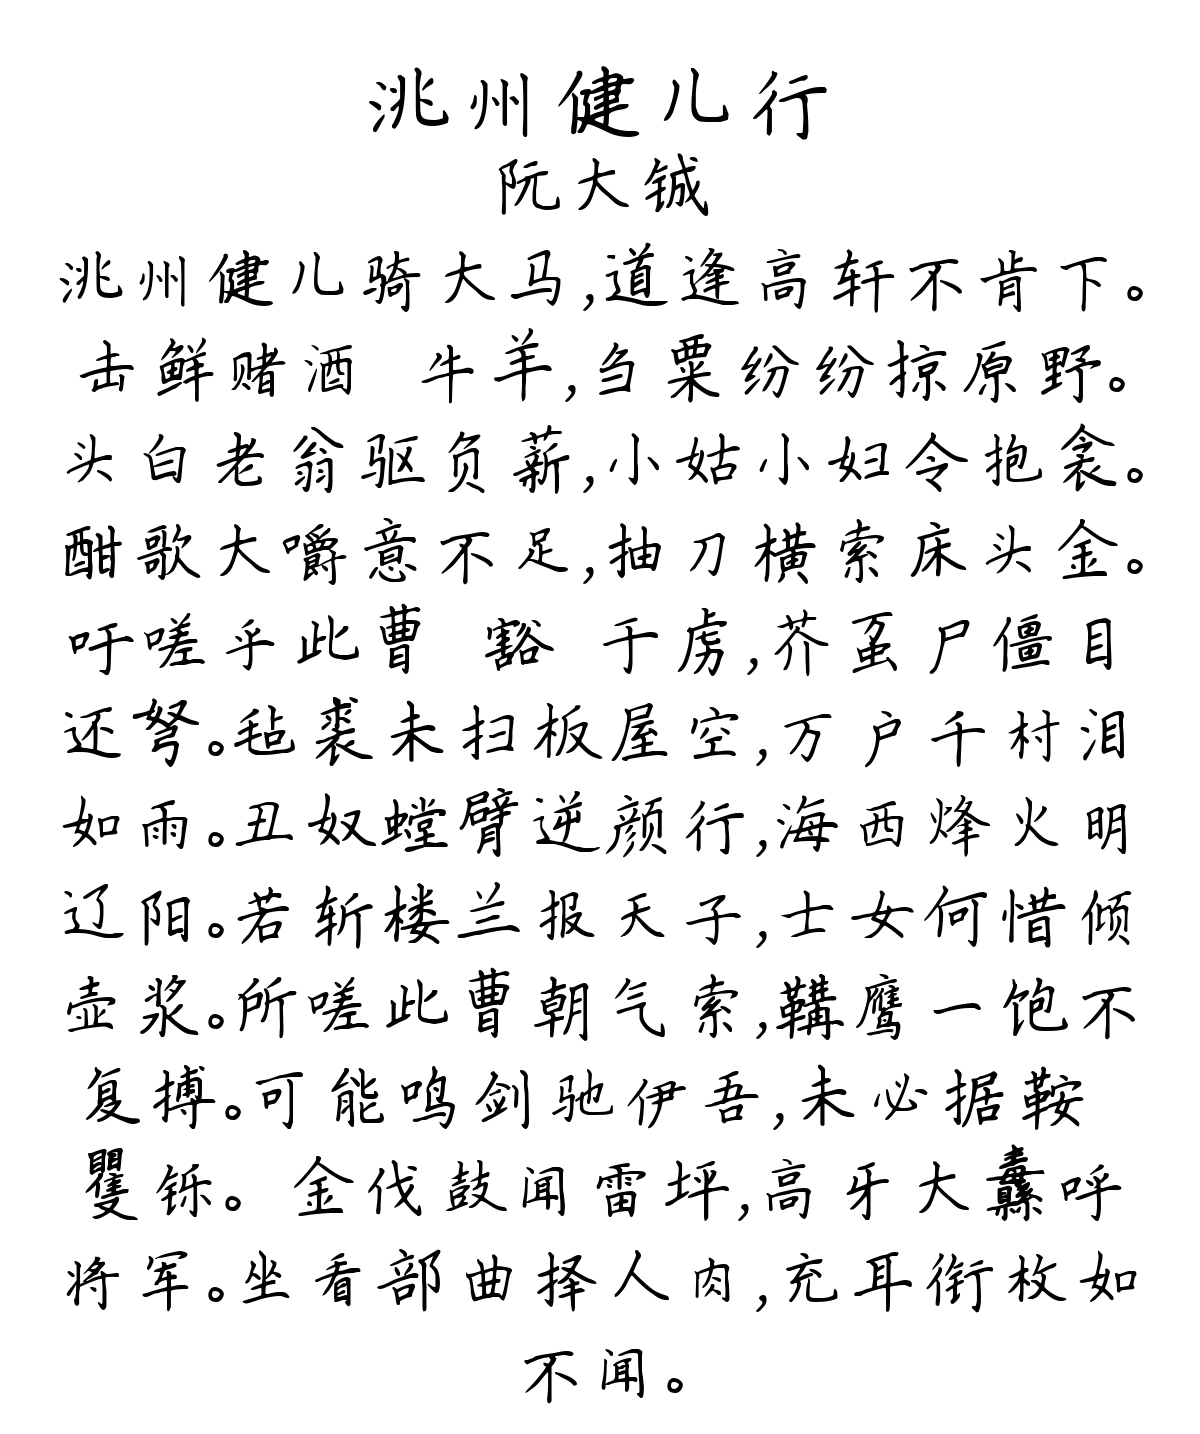 洮州健儿行
阮大铖
洮州健儿骑大马,道逢高轩不肯下。
击鲜赌酒 牛羊,刍粟纷纷掠原野。
头白老翁驱负薪,小姑小妇令抱衾。
酣歌大嚼意不足,抽刀横索床头金。
吁嗟乎此曹 豁 于虏,芥虿尸僵目
还弩。毡裘未扫板屋空,万户千村泪
如雨。丑奴螳臂逆颜行,海西烽火明
辽阳。若斩楼兰报天子,士女何惜倾
壶浆。所嗟此曹朝气索,鞲鹰一饱不
复搏。可能鸣剑驰伊吾,未必据鞍
矍铄。 金伐鼓闻雷坪,高牙大纛呼
将军。坐看部曲择人肉,充耳衔枚如
不闻。